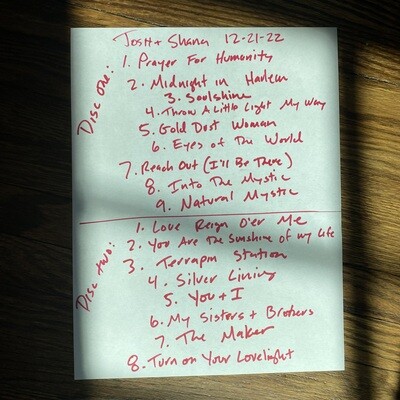 Josh + Shana 12-21-22
Disc One:
1. Prayer For Humanity
2. Midnight in Harlem
3. Soulshine
4. Throw A Little Light My Way
5. Gold Dust Woman
6. Eyes of The World
7. Reach Out (I'll Be There)
8. Into The Mystic
9. Natural Mystic
Disc two:
1. Love Reign O'er Me
2. You Are The Sunshine of my Life
3. Terrapin Station
4. Silver Lining
5. You + I
6. My Sisters + Brothers
7. The Maker
8. Turn on Your Lovelight